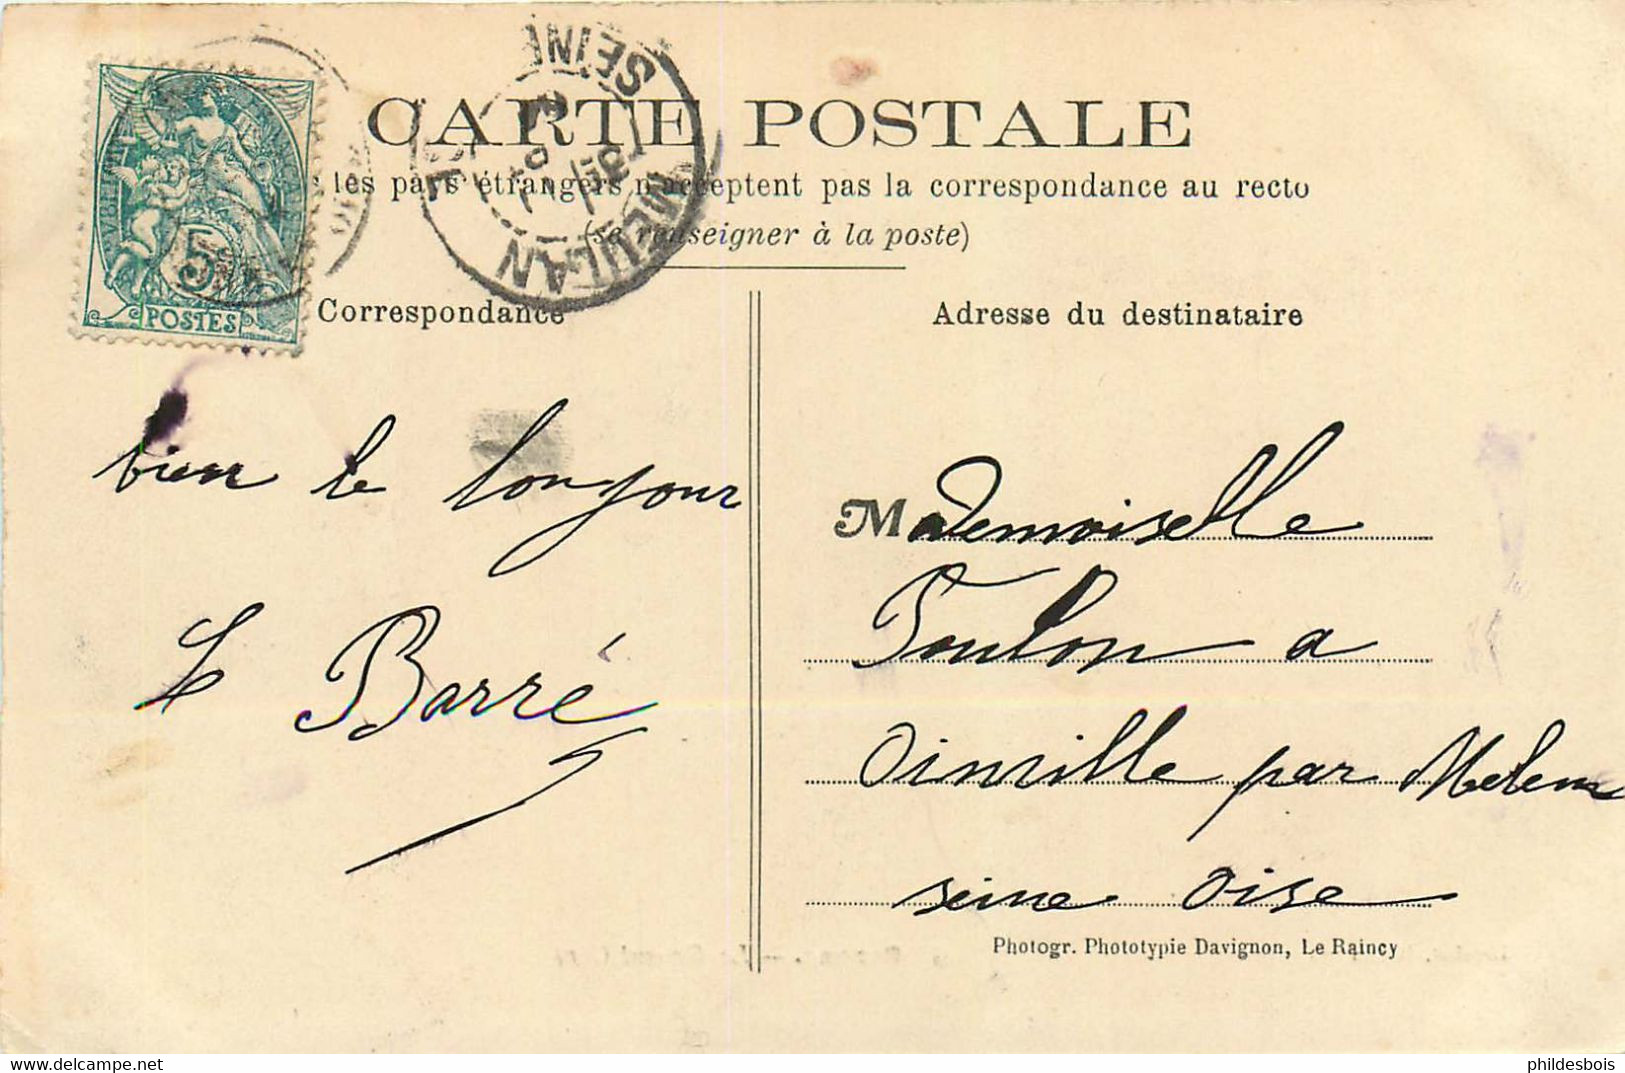 CARTE POSTALE
les pays étrangers n'acceptent pas la correspondance au recto
(se renseigner à la poste)
POSTES
5
MEULAN
SEINE
Correspondance
Adresse du destinataire
bien le bonjour
L Barré
Mademoiselle
Toulon a
Oinville par Melun
seine Oise
Photogr. Phototypie Davignon, Le Raincy
https://www.delcampe.net
phildesbois